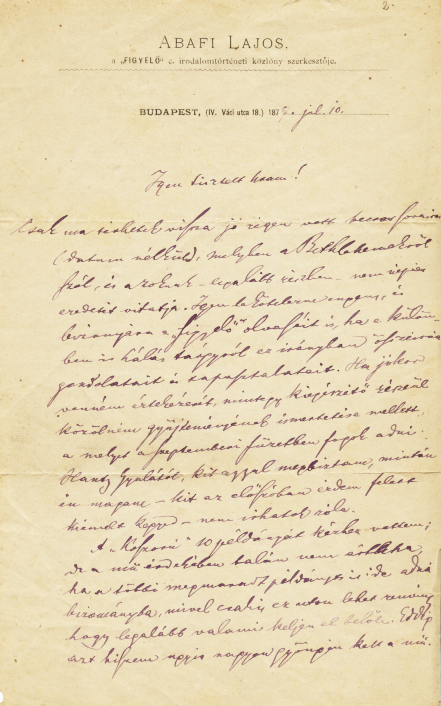 2.
ABAFI LAJOS,
a „FIGYELŐ" c. irodalomtörténeti közlöny szerkesztője.
BUDAPEST, (IV. Váci utca 18.) 187 júl. 10.
Igen tisztelt Uram!
Csak ma térhetek vissza jó régen vett becses soraira
(datum nélkül), melyben a Bethlehemekről
szól, és azoknak – legalább részben – nem népies
eredetét vitatja. Igen le engem, és
bizonyára a „Figyelő" olvasóit is, ha e külön-
ben is hálás tárgyról ez irányban összeírná
gondolatait és tapasztalatait. Ha jókor
venném értekezését, mintegy kiegészítő részül
közölném gyűjteményének ismertetése mellett,
a melyet a septemberi füzetben fogok adni.
Gyulától, kit azzal megbíztam, miután
én magam – kit az előszóban érdem felett
kiemelt – nem írhatok róla.
A „Koszorú" 10 példányát kézhez vettem;
de a mű érdekében talán nem ártana,
ha a többi megmaradt példányt is ide adná
bizományba, mivel csakis ez uton lehet remény
hogy legalább valami keljen el belőle.
azt hiszem úgyis nagyon gyöngén kelt a mű.